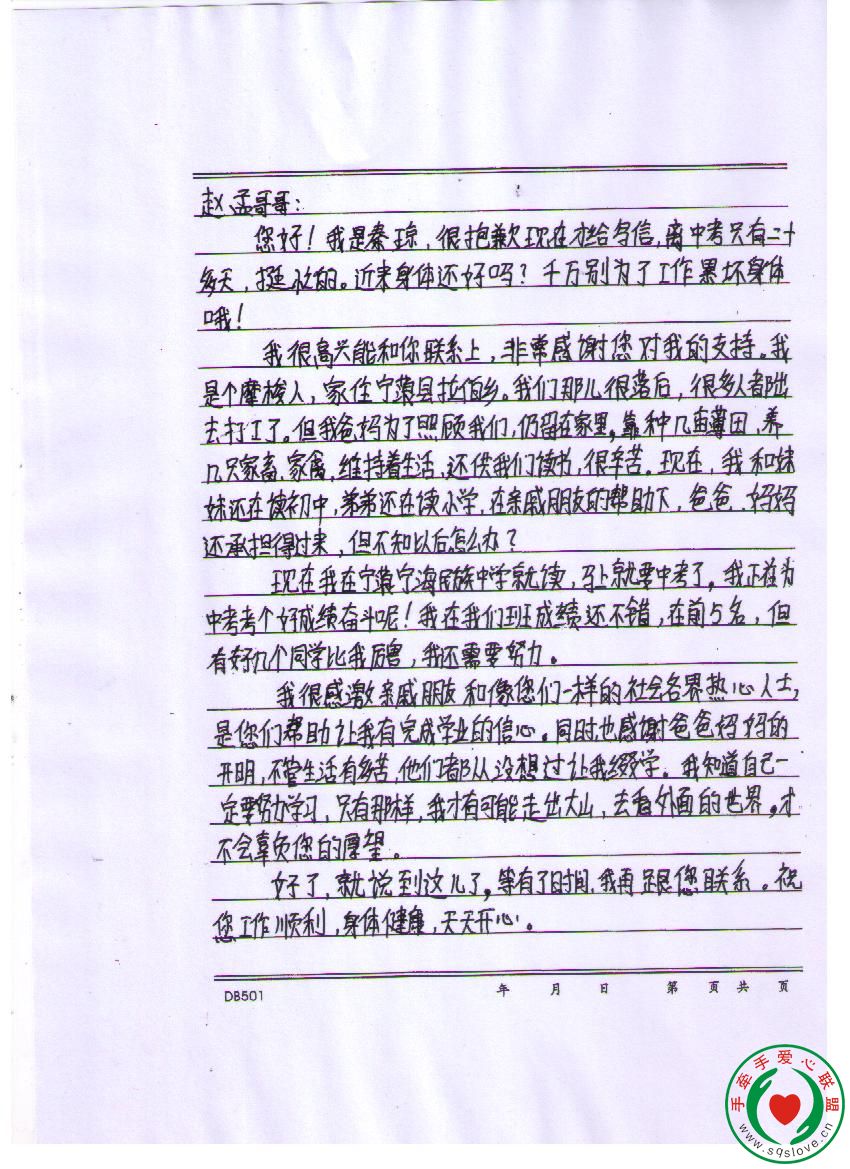 赵孟哥哥：
您好！我是秦琼，很抱歉现在才给写信，离中考只有二十
多天，挺忙的。近来身体还好吗？千万别为了工作累坏身体
哦！
我很高兴能和你联系上，非常感谢您对我的支持。我
是个摩梭人，家住宁蒗县拉伯乡。我们那儿很落后，很多人都出
去打工了。但我爸妈为了照顾我们，仍留在家里，靠种几亩薄田，养
几只家畜、家禽，维持着生活，还供我们读书，很辛苦。现在，我和妹
妹还在读初中，弟弟还在读小学，在亲戚朋友的帮助下，爸爸、妈妈
还承担得过来，但不知以后怎么办？
现在我在宁蒗宁海民族中学就读，马上就要中考了，我正在为
中考考个好成绩奋斗呢！我在我们班成绩还不错，在前5名，但
有好几个同学比我厉害，我还需要努力。
我很感激亲戚朋友和像您们一样的社会各界热心人士，
是您们帮助让我有完成学业的信心。同时也感谢爸爸妈妈的
开明，不管生活有多苦，他们都从没想过让我缀学。我知道自己一
定要努力学习，只有那样，我才有可能走出大山，去看外面的世界，才
不会辜负您的厚望。
好了，就说到这儿了，等有了时间，我再跟您联系。祝
您工作顺利，身体健康，天天开心。
DB501 年 月 日 第 页 共 页
手牵手爱心联盟
www.sqslove.cn